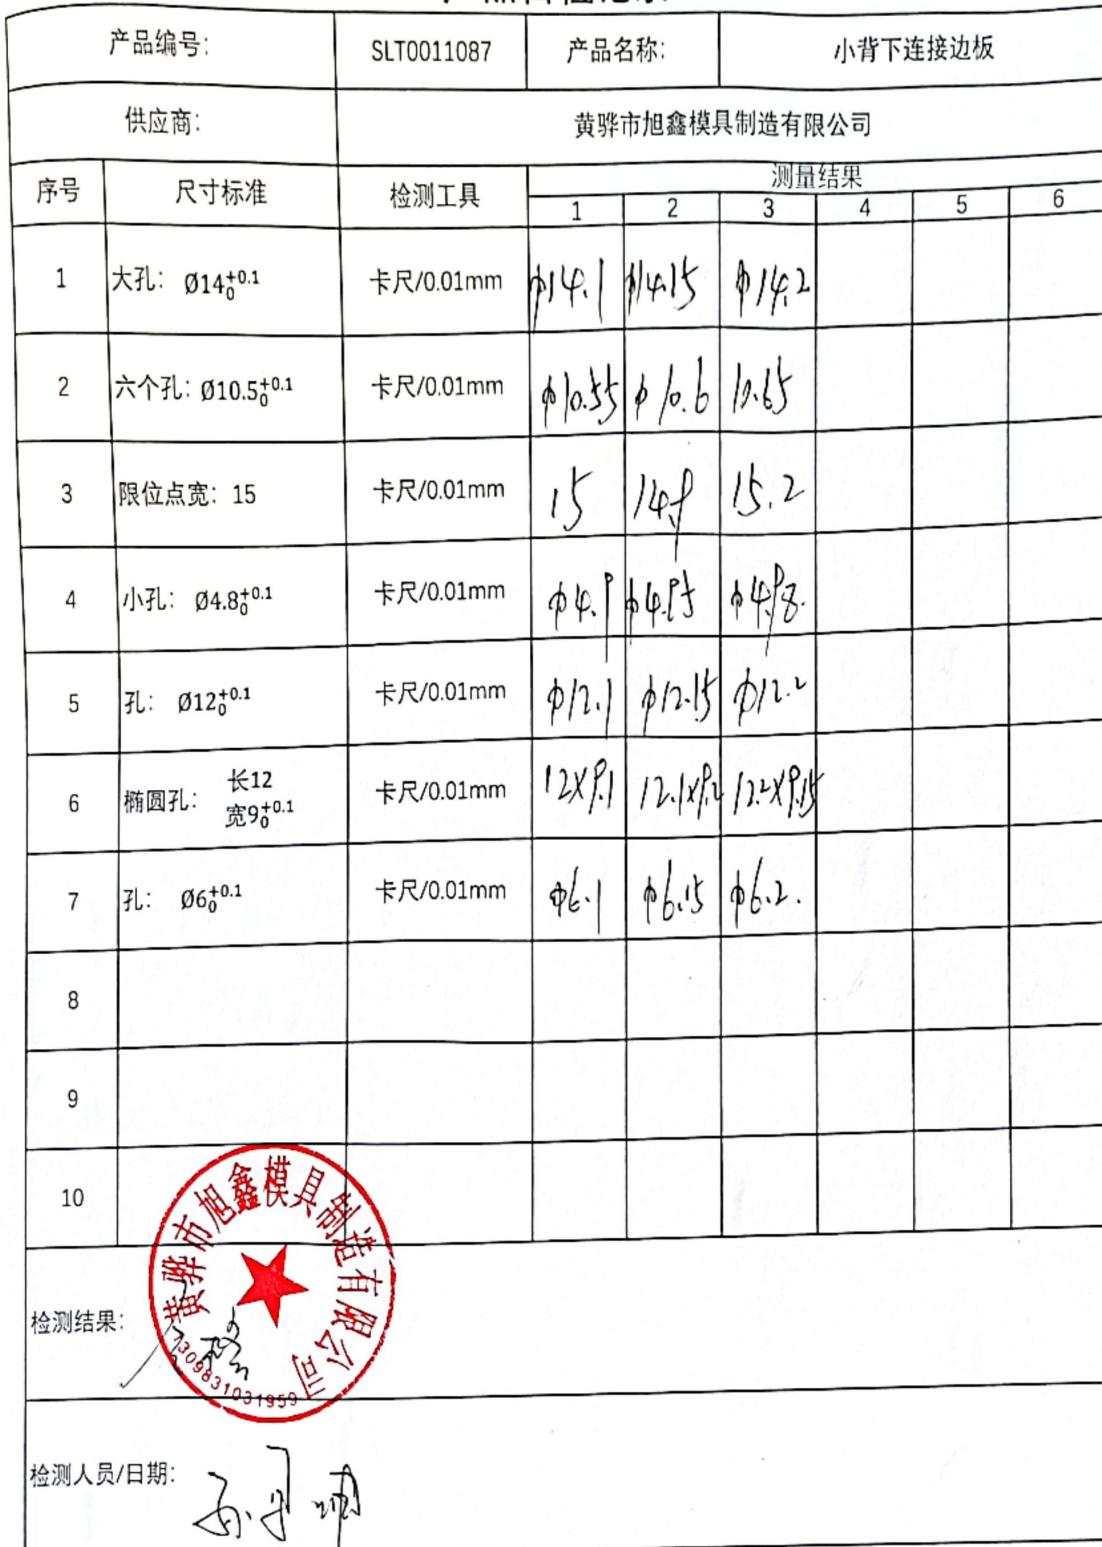 产品编号： SLT0011087 产品名称： 小背下连接边板
供应商： 黄骅市旭鑫模具制造有限公司
序号 尺寸标准 检测工具 测量结果
1 2 3 4 5 6
1 大孔： Ø14+0.1 0 卡尺/0.01mm φ14.1 φ14.15 φ14.2
2 六个孔：Ø10.5+0.1 0 卡尺/0.01mm φ10.55 φ10.6 10.65
3 限位点宽：15 卡尺/0.01mm 15 14.9 15.2
4 小孔： Ø4.8+0.1 0 卡尺/0.01mm φ4.9 φ4.95 φ4.98
5 孔： Ø12+0.1 0 卡尺/0.01mm φ12.1 φ12.15 φ12.2
6 椭圆孔： 长12 宽9+0.1 0 卡尺/0.01mm 12X9.1 12.1X9.2 12.2X9.15
7 孔： Ø6+0.1 0 卡尺/0.01mm φ6.1 φ6.15 φ6.2.
8
9
10
检测结果：
黄骅市旭鑫模具制造有限公司
1309831031959
检测人员/日期：